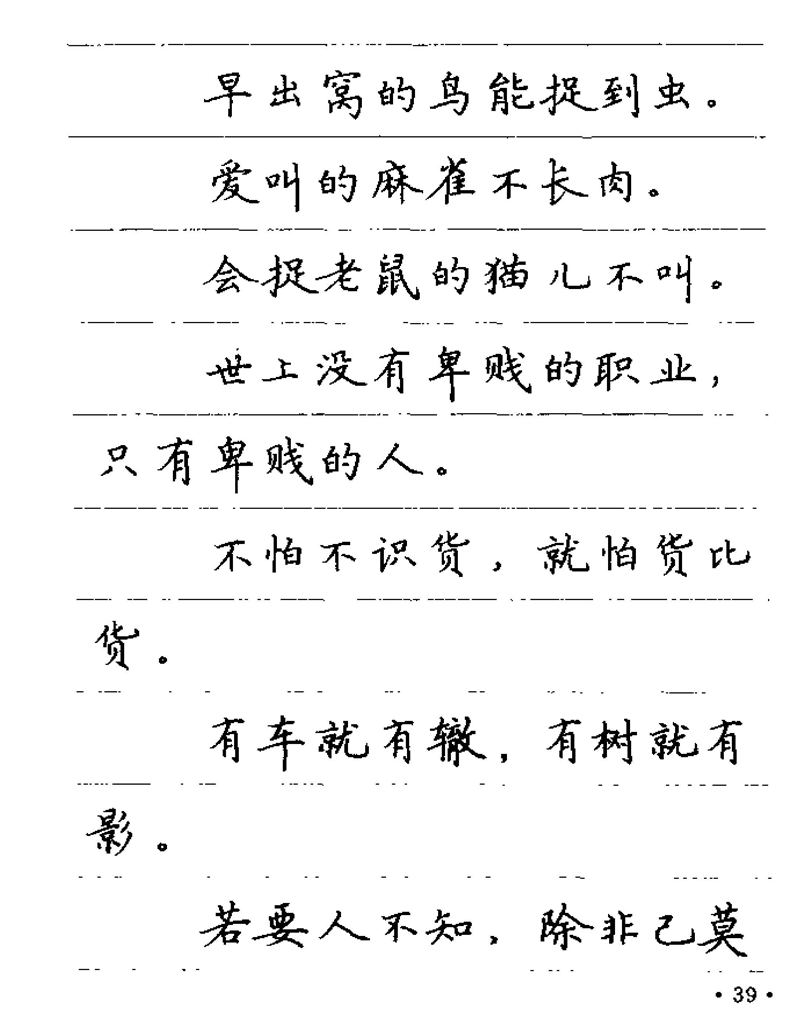 早出窝的鸟能捉到虫。
爱叫的麻雀不长肉。
会捉老鼠的猫儿不叫。
世上没有卑贱的职业，
只有卑贱的人。
不怕不识货，就怕货比
货。
有车就有辙，有树就有
影。
若要人不知，除非己莫
·39·